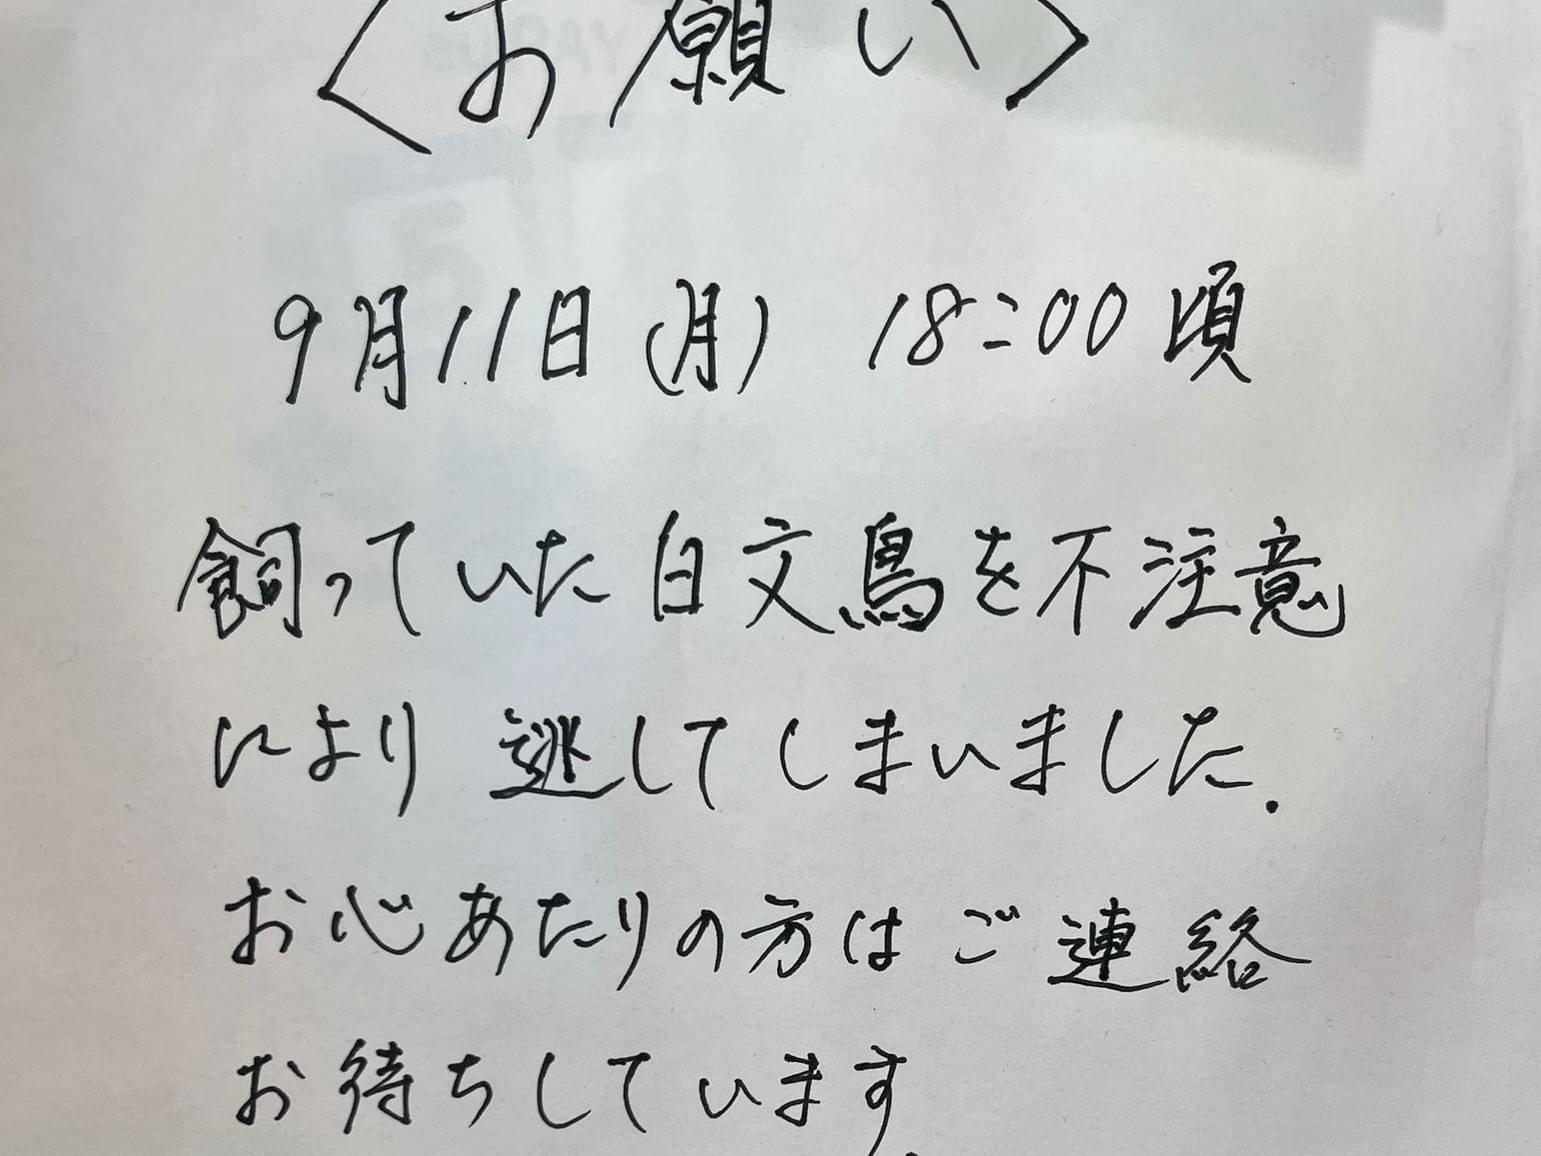 〈お願い〉
9月11日(月) 18:00頃
飼っていた白文鳥を不注意
により 逃してしまいました.
お心あたりの方はご連絡
お待ちしています.